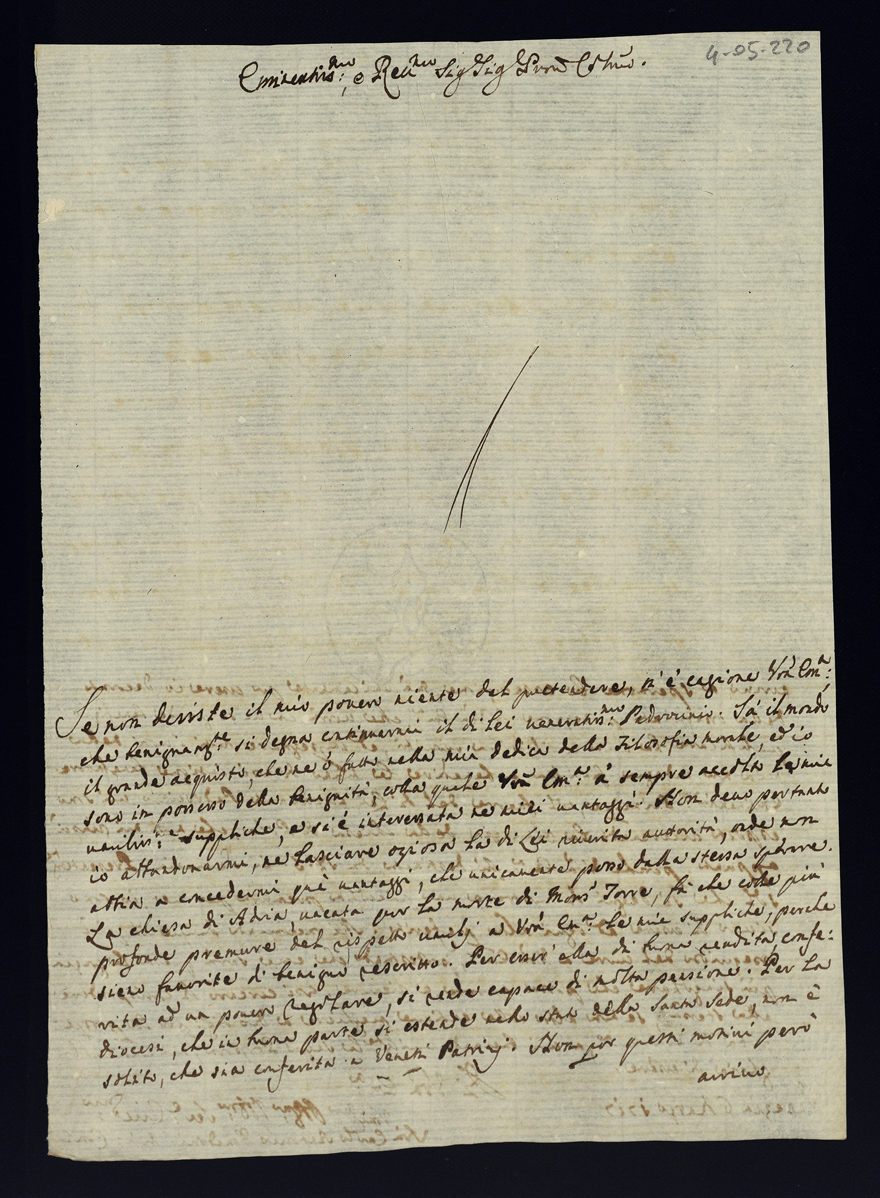 4-05-220
Eminentis:mo e Re:mo Sig: Sig: Pron Colmo.
Se non desiste il mio povero niente dal pretendere, n'è cagione Vra Em:a
che benignam:te si degna continuarmi il di Lei veneratis:mo Padrocinio. Sà il mondo
il grande acquisto, che ne ò fatto nella mia dedica della Filosofia morale, ed io
sono in possesso della benignità, colla quale Vra Em:a à sempre accolta le mie
umilis:e suppliche, e si è interessata ne miei vantaggi. Non devo pertanto
io abbandonarmi, ne lasciare oziosa la di Lei riverita autorità, onde non
abbia a concedermi que vantaggi, che unicamente posso dalla stessa sperare.
La chiesa di Adria, vacata per la morte di Mons:r Torre, fà che colle più
profonde premure del rispetto umilj a Vra Em:a le mie suppliche, perche
sieno favorite di benigno rescritto. Per esser ella di buona rendita, confe:
rita ad un povero regolare, si rende capace di molta pensione. Per la
diocesi, che in buona parte si estende nello stato della Santa Sede, non è
solito, che sia conferita a Veneti Patrizj. Non per questi motivi però
arrivo